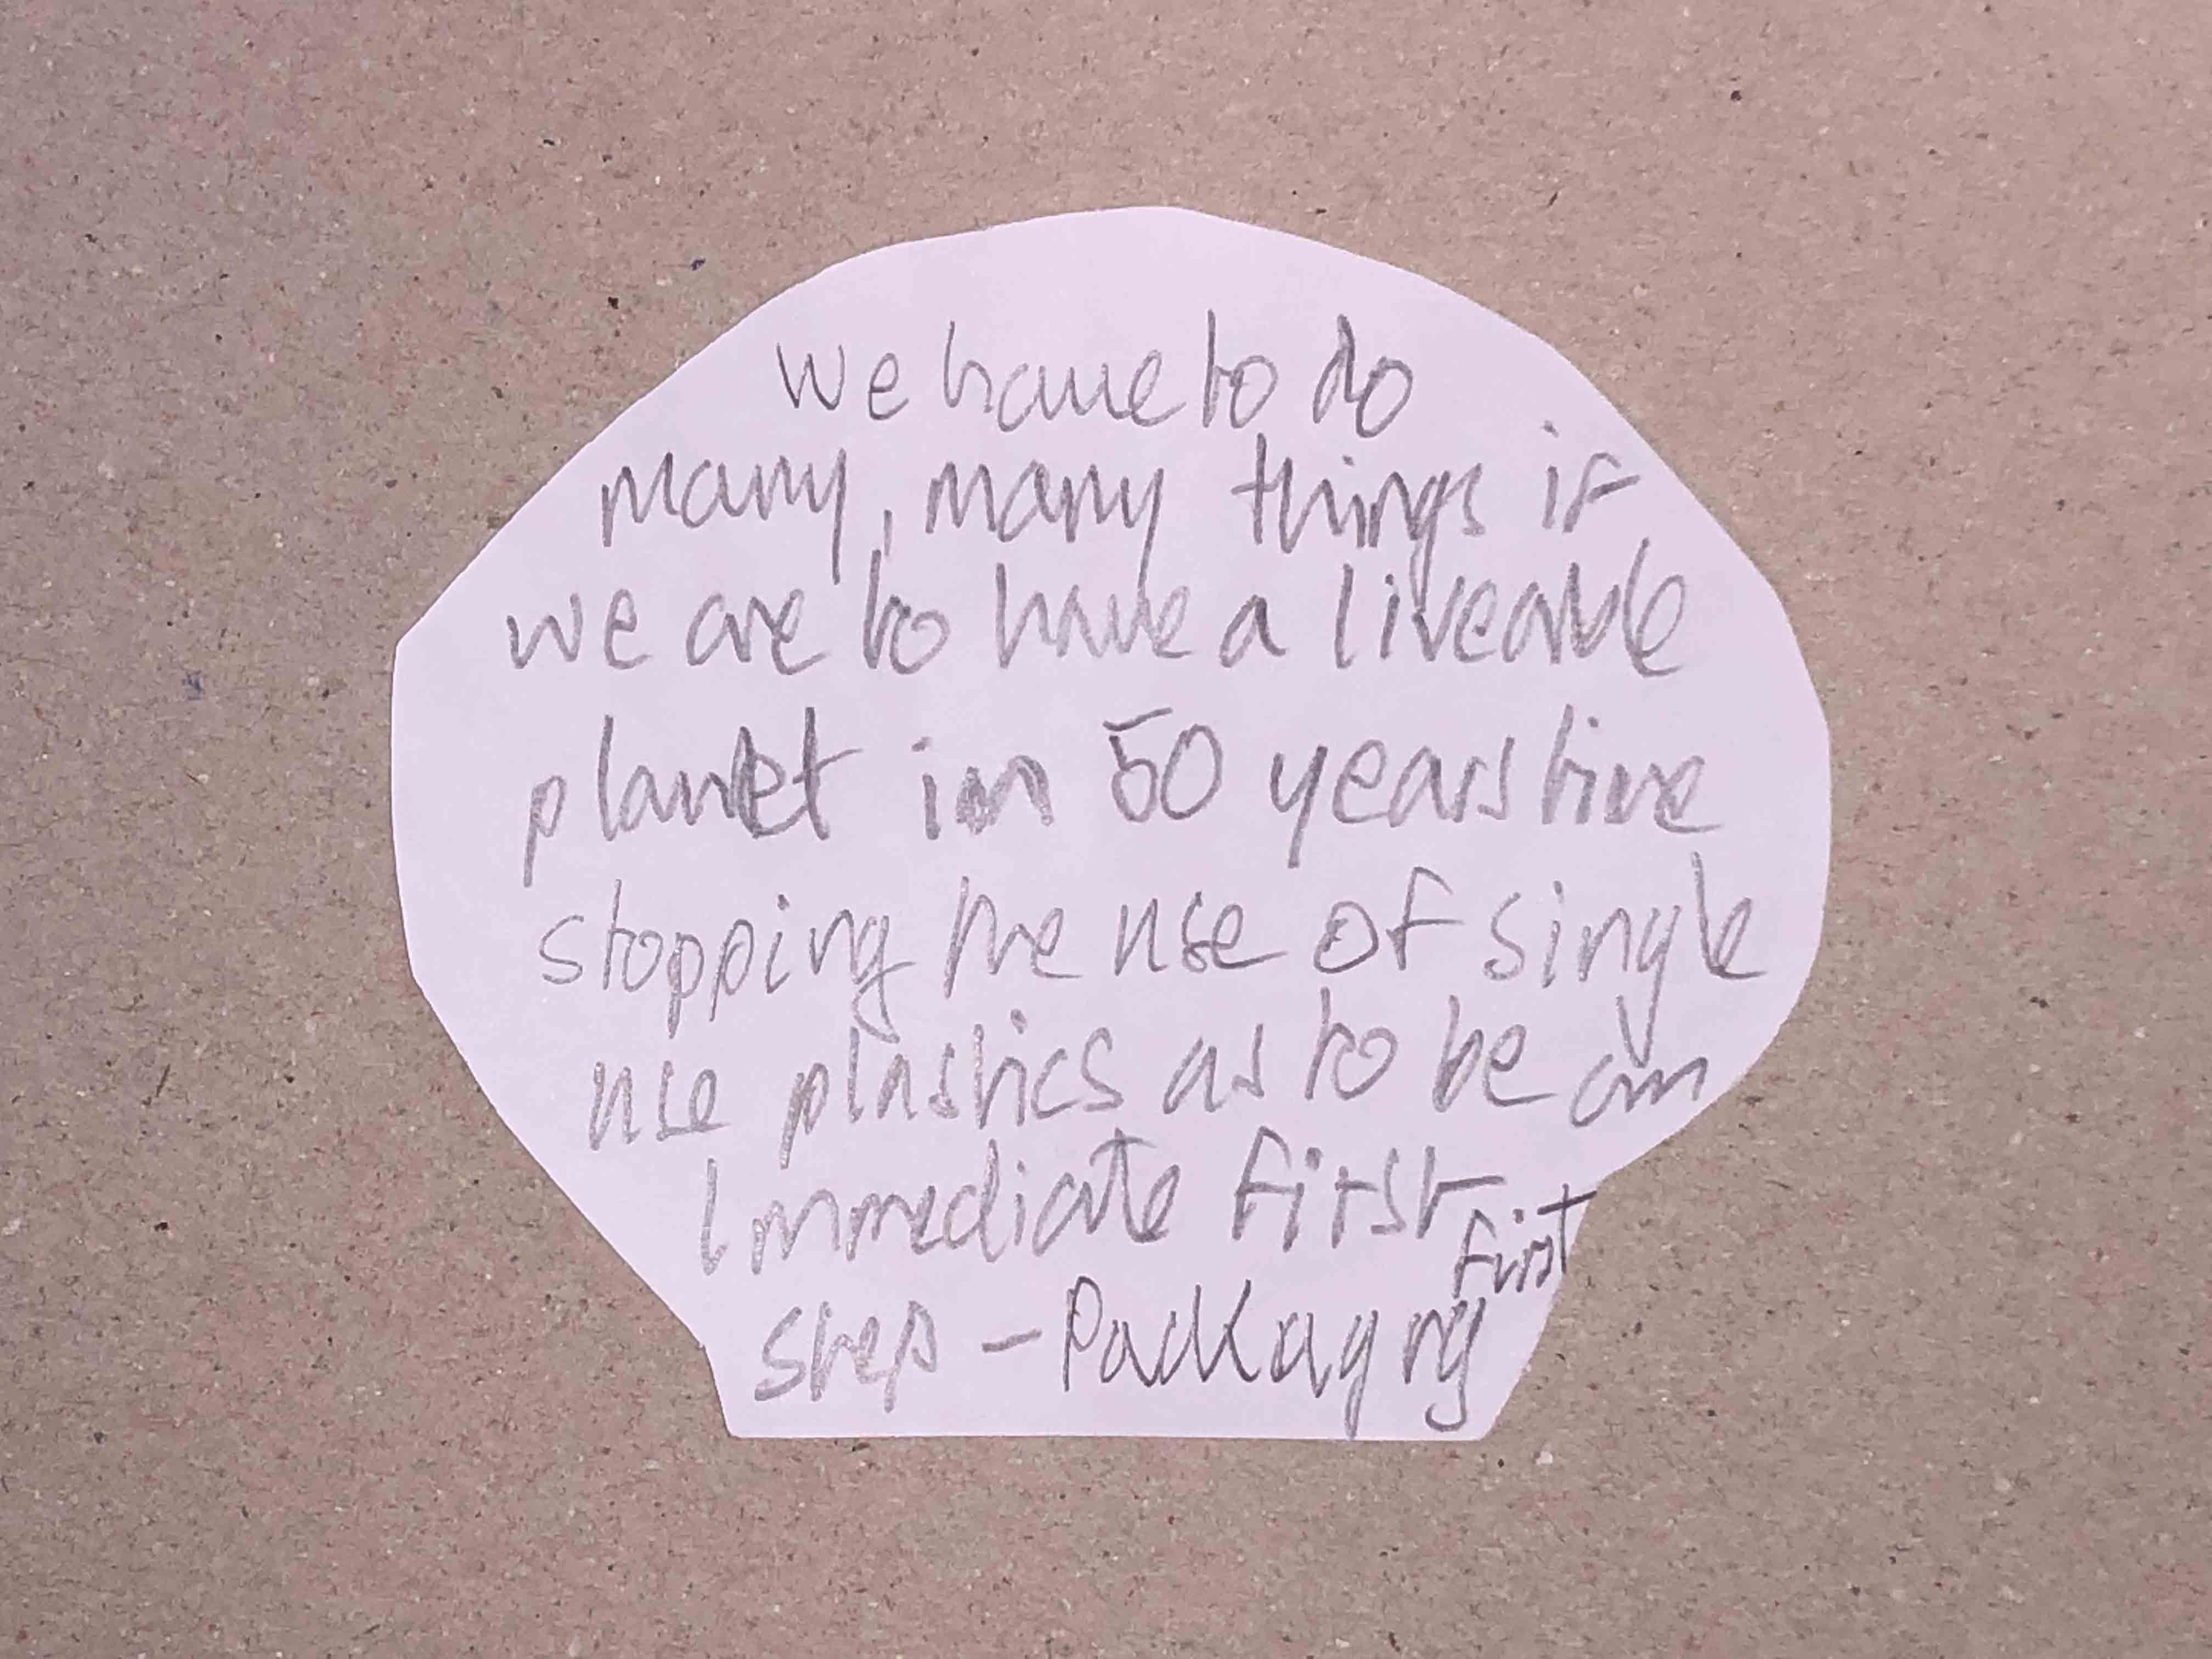 We have to do
many, many things if
we are to have a liveable
planet in 50 years time
stopping the use of single
use plastics as to be an
Immediate first
step - Packaging first